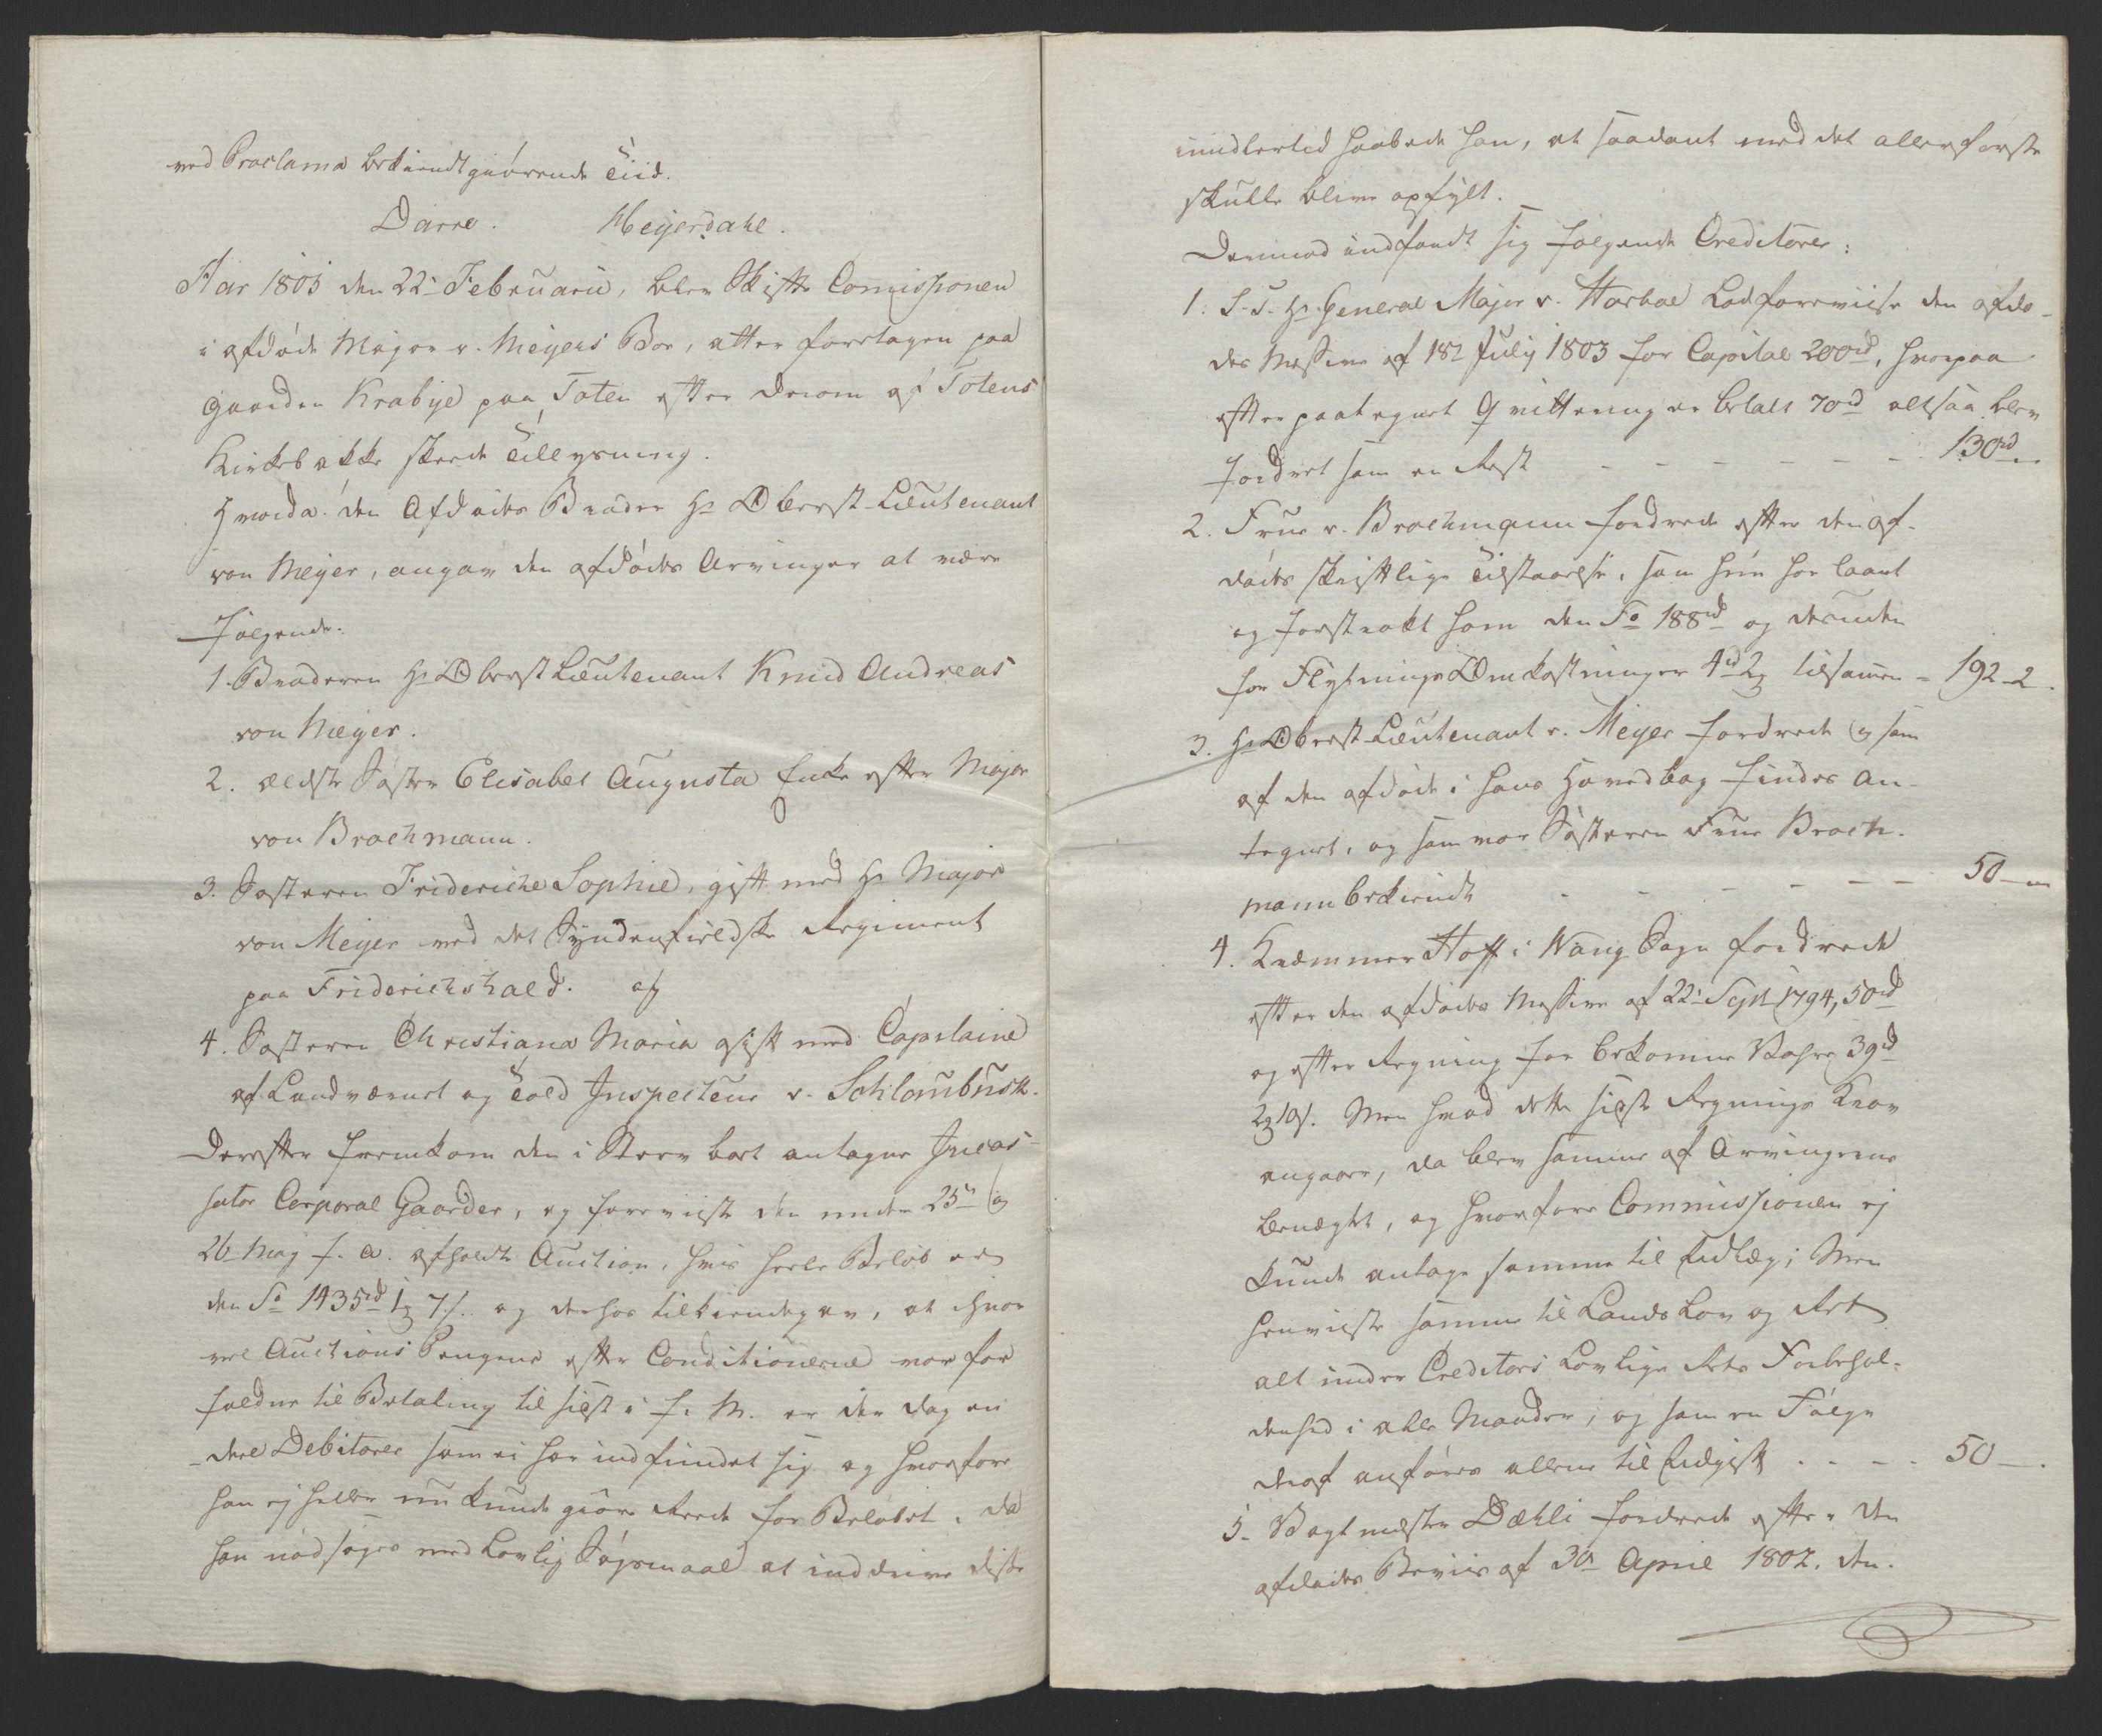 ved Proclama bekiendtgiørende Tiid.
Darre. Meijerdahl.
Aar 1805 den 22de Februarii, blev Skifte Comissionen
i afdøde Major v. Meÿers Boe, atter foretagen paa
gaarden Krabÿe paa Toten efter derom af Totens
Kirkebakke skeede Tillysning.
Hvorda den Afdødes Broder Hr Oberst-Lieutenant
von Meÿer, angav den afdødes Arvinger at være
følgende:
1. Broderen Hr Oberst Lieutenant Knud Andreas
von Meÿer.
2. ældste Søster Elisabet Augusta Enke efter Major
von Brochmann.
3. Søsteren Frideriche Sophie, gift med Hr Major
von Meÿer ved det Syndenfieldske Regiment
paa Friderichshald. og
4. Søsteren Christiana Maria gift med Capitaine
af Landværnet og Told Inspecteur v. Schlambusk.
Derefter fremkom den i Sterv boet antagne Incas-
sator Corporal Gaarder, og foreviiste den under 25de og
26 Maÿ f. a. afholdte Auction, hvis heele Beløb er
den Sa 1435rd 1 7 s. og derhos tilkiendegav, at hvor
vel Auctions Pengene efter Conditionerne var for
falden til Betaling til sidst i f. M. er der dog en
deel Debitorer som ei har indfundet sig og hvorfore
han ej heller nu kunde giøre Reede for Beløbet, da
han nødsages med Lovlig Søgsmaal at inddrive disse
imidlertid haabede han, at saadant med det allerførste
skulle blive opfÿlt.
Dernæst indfandt sig følgende Creditorer:
1. S. T. Hr General Major v. Harboe lod foreviise den afdø-
des Missive af 18de Julÿ 1803 for Capital 200rd, hvorpaa
efter paategnet Qvittering er betalt 70rd altsaa blev
fordret som en Rest - - - - - - 130rd
2. Frue v. Brochmann fordrede efter den af-
dødes skriftlige Tilstaaelse, som hun har laant
og forstrakt ham den Sa 188rd og desuden
for Flytnings Omkostninger 4rd 2 tilsamen - 192-2.
3. Hr Oberst Lieutenant v. Meÿer fordrede og som
af den afdøde i hans Hovedbog findes an-
tegnet, og som var Søsteren Frue Broch-
mann bekiendt - - - - - - 50-
4. Kræmmer Hoff i Wang Sogn fordrede
efter den afdødes Missive af 22de Sept 1794, 50rd
og efter Regning for bekomne Vahre 39rd
2 10 s. Men hvad dette sidste Regnings Krav
angaaer, da blev samme af Arvingerne
benægtet, og hvorfore Commissionen ej
kunde antage samme til Udlæg; Men
henviiste samme til Lands Lov og Ret
alt under Creditors Lovlige Rets Forbehol-
denhed i alle Maader; og som en Følge
deraf anføres allene til Udgift - - - 50-.
5. Vagtmester Dæhli fordrede efter den
afdødes Beviis af 30 April 1802. den